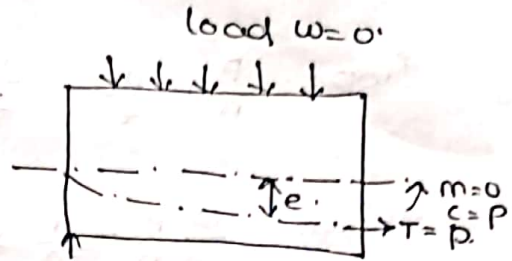 load w=0.
e.
m=0
c=P
T=P.